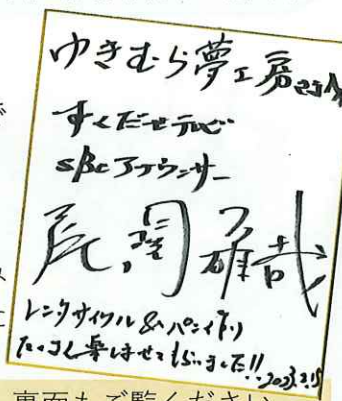 ゆきむら夢工房さんへ
ずくだせテレビ
SBCアナウンサー
尾関雅哉
レンタサイクル & パン作り
たくさん楽しませてもらいました!! 2023.2.15
が
に
裏面もご覧ください